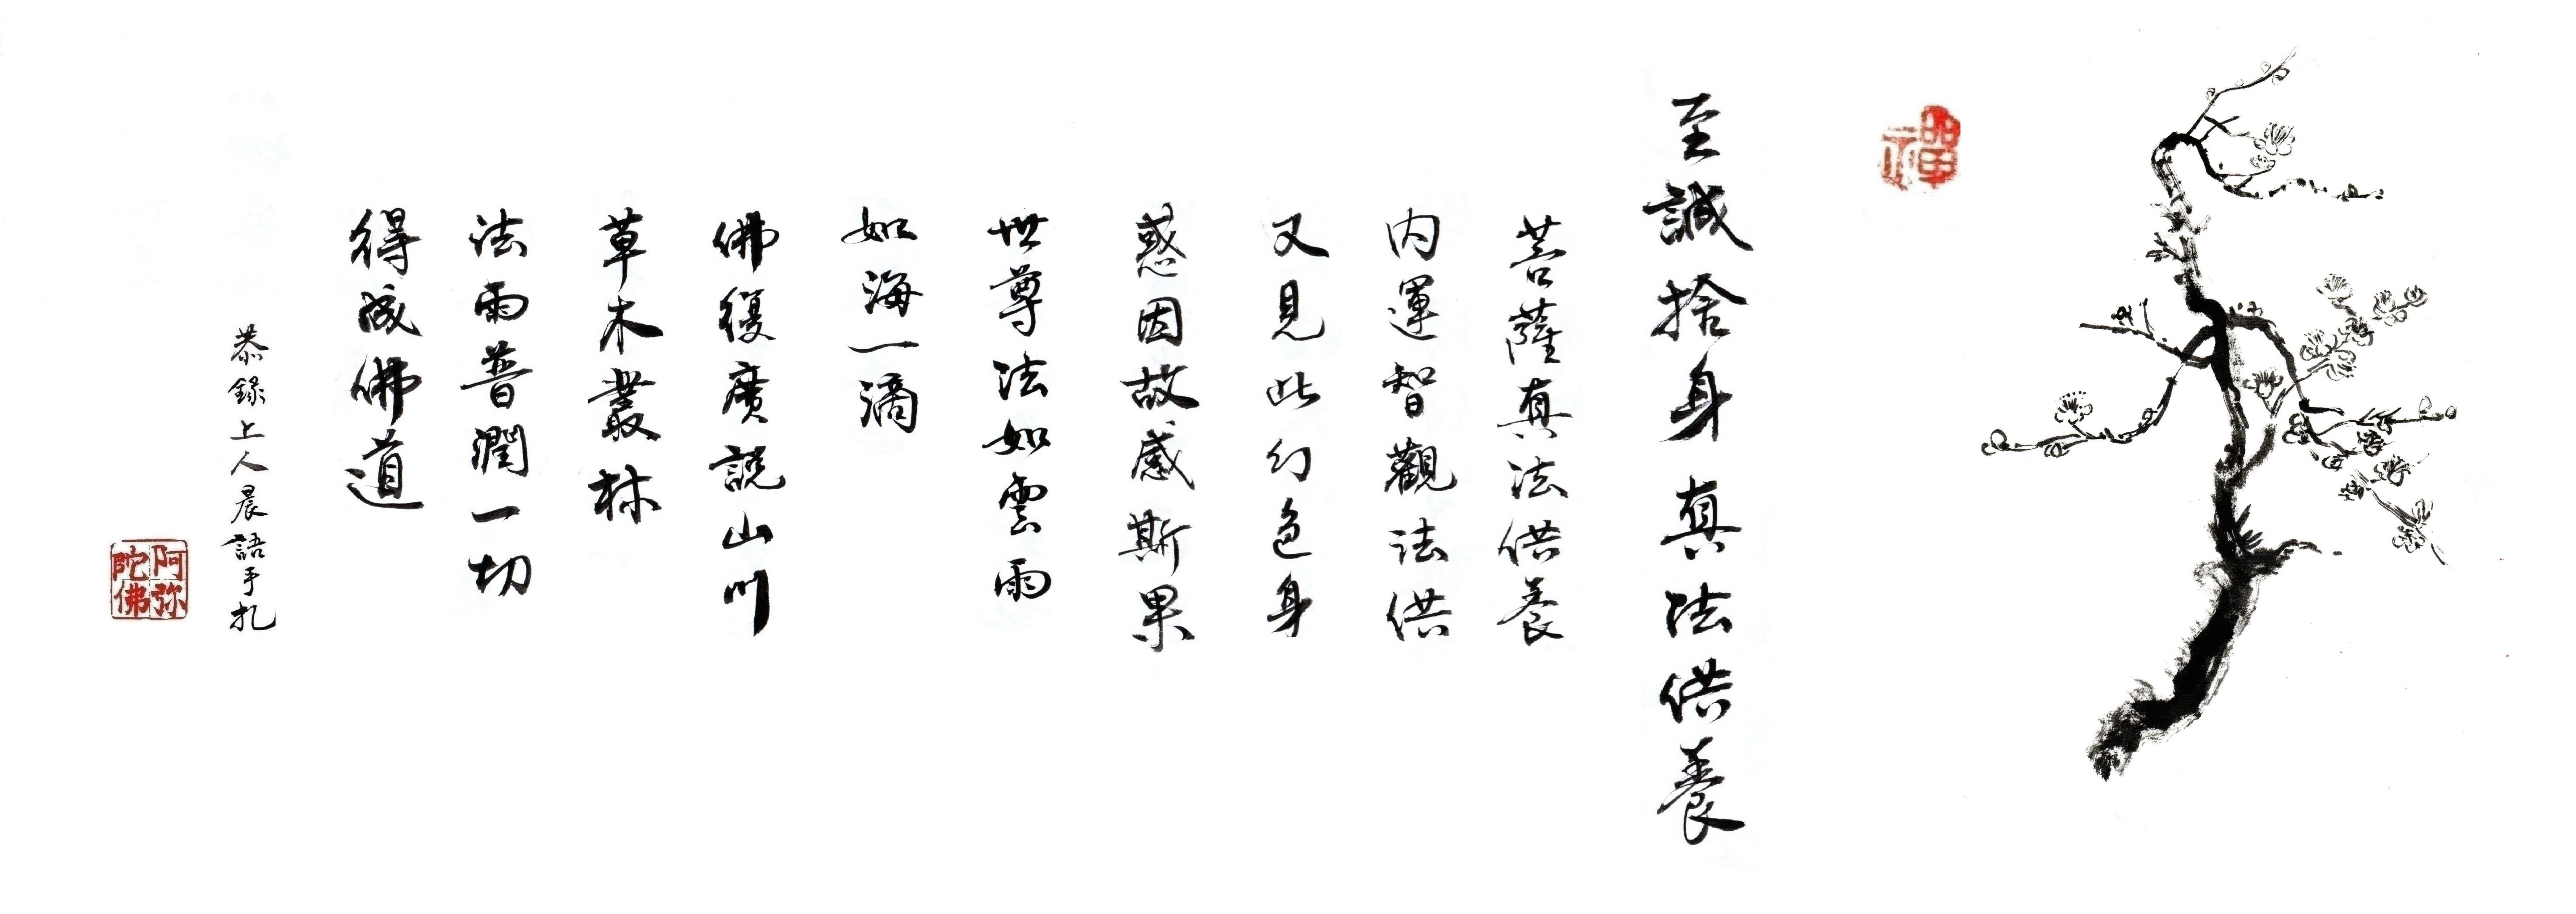 禪
至誠捨身真法供養
菩薩真法供養
內運智觀法供
又見此幻色身
惑因故感斯果
世尊法如雲雨
如海一滴
佛復廣說山川
草木叢林
法雨普潤一切
得成佛道
恭錄上人晨語手札
阿弥
陀佛